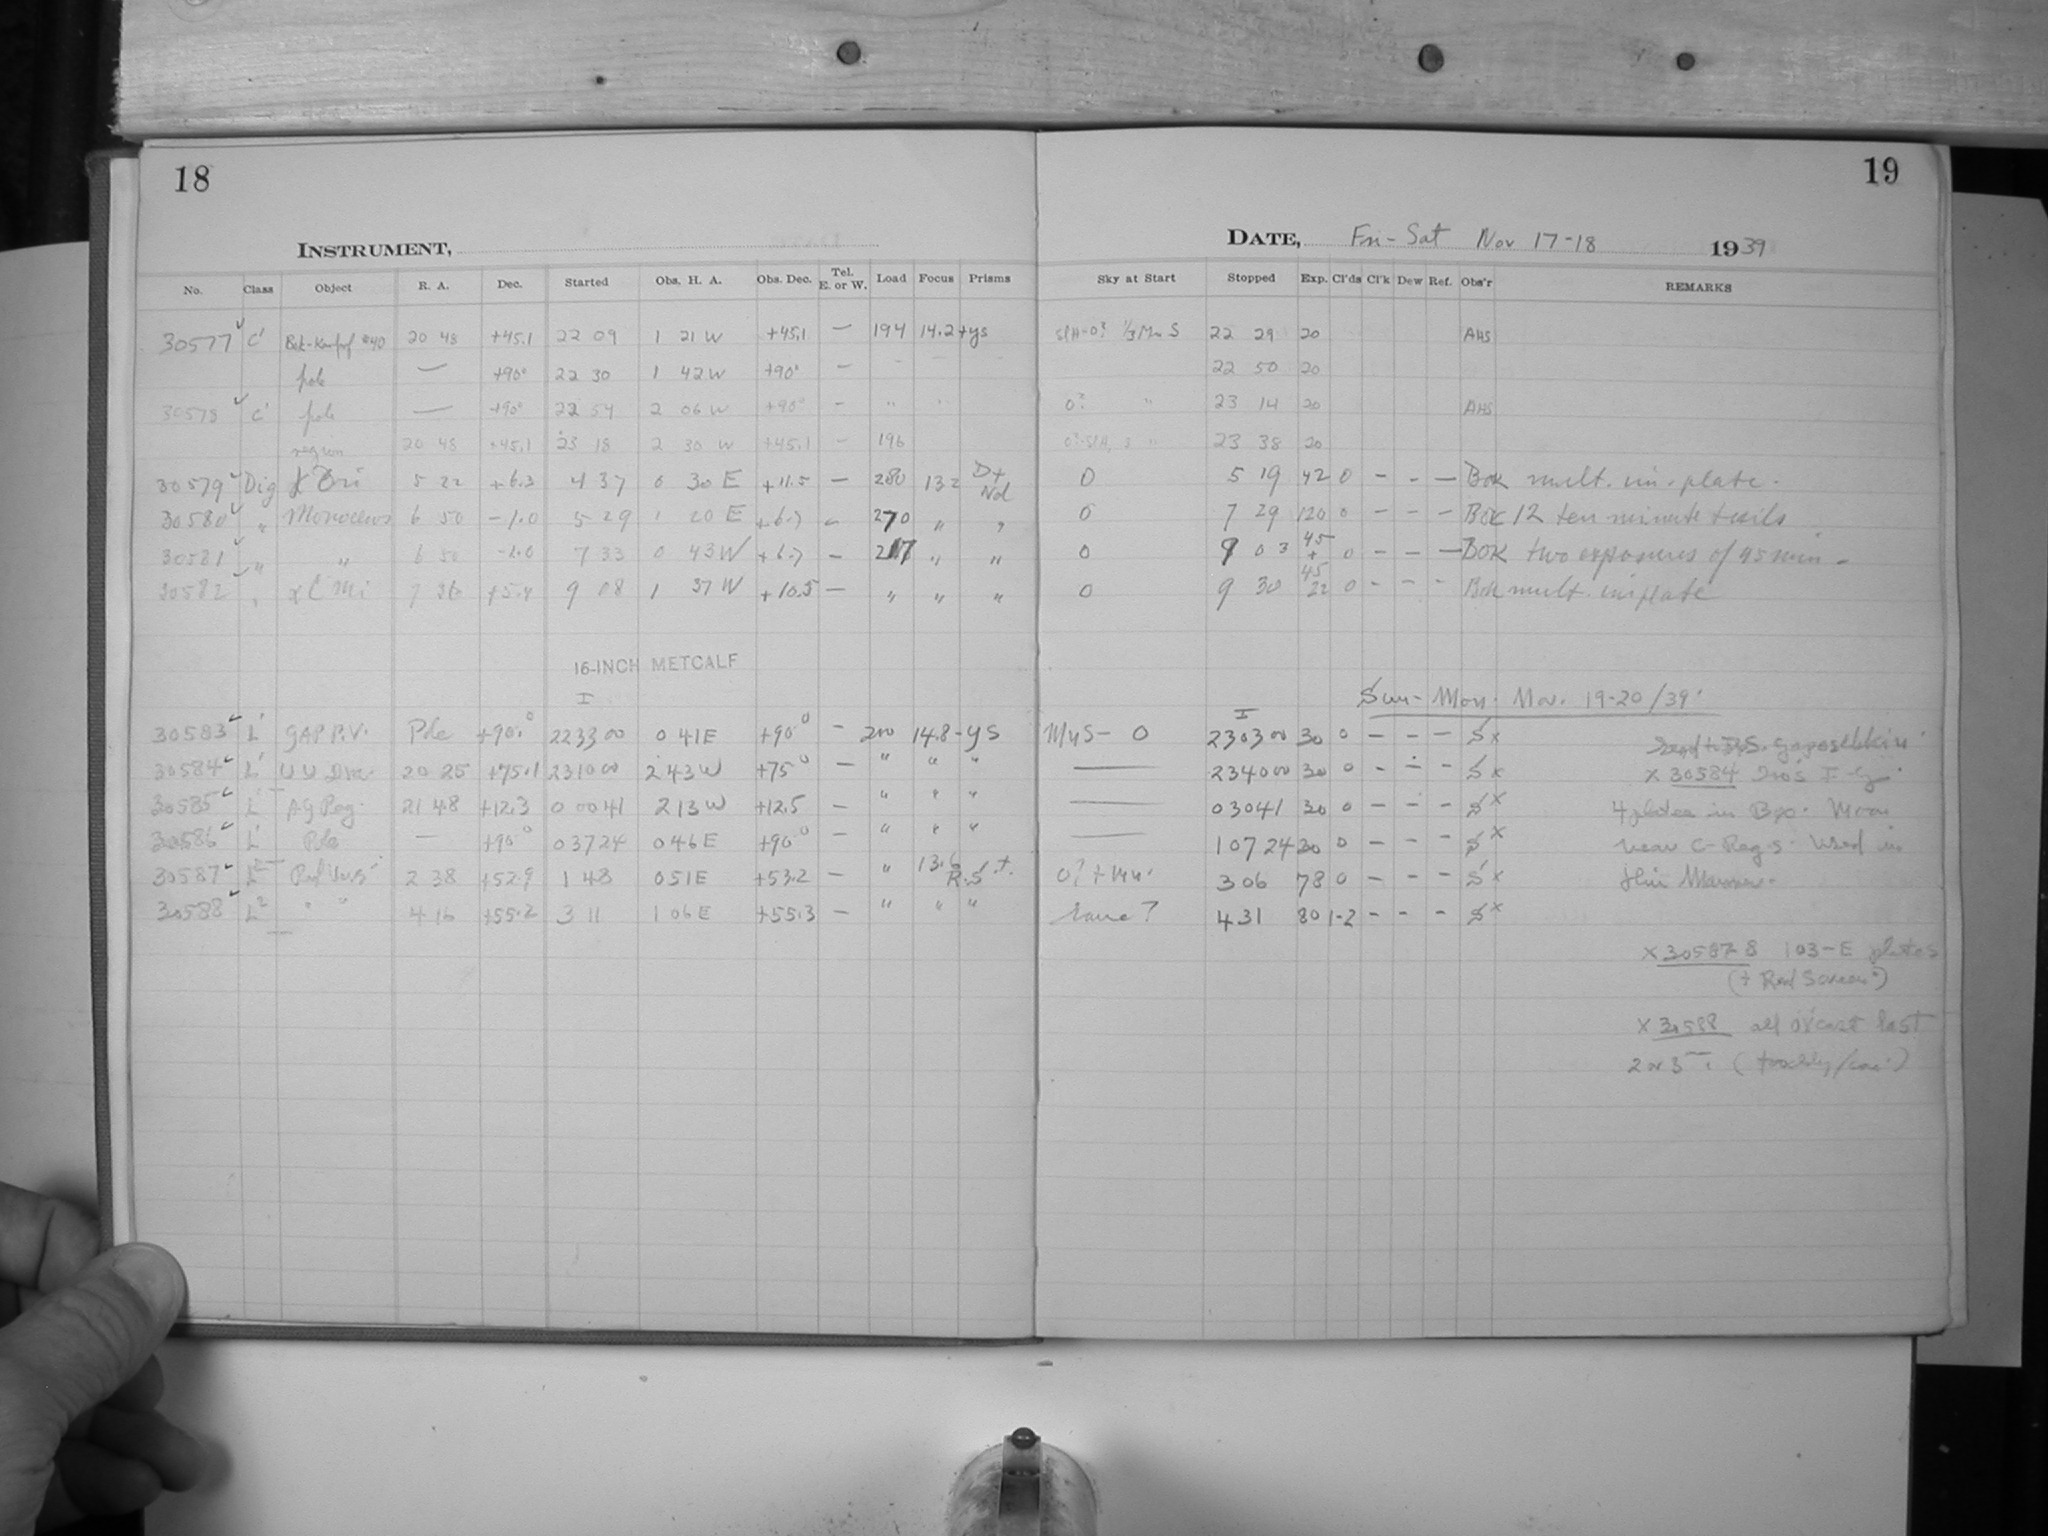 18
INSTRUMENT,
No. Class Object R. A. Dec. Started Obs. H. A. Obs. Dec. Tel. E. or W. Load Focus Prisms
30577 C' 20 48 +45.1 22 09 1 21 W +45.1 — 194 14.2 + ys
pole — +90° 22 30 1 42 W +90° —
30578 C' pole — +90° 22 54 2 06 W +90° — "
region 20 48 +45.1 23 18 2 30 W +45.1 — 196
30579 Dig Ori 5 22 +6.3 4 37 0 30 E +11.5 — 280 13.2 D+ Nd
30580 " Monoceros 6 50 -1.0 5 29 1 20 E +6.7 — 270 " "
30581 " " 6 50 -1.0 7 33 0 43 W +6.7 — 217 " "
30582 " α C Mi 7 36 +5.4 9 08 1 37 W +10.5 — " " "
16-INCH METCALF
I
30583 L' GAP P.V. Pole +90.° 22 33 00 0 41 E +90° — 200 14.8 - ys
30584 L' UU Dra. 20 25 +75.1 23 10 00 2 43 W +75° — " " "
30585 L' AG Peg. 21 48 +12.3 0 00 41 2 13 W +12.5 — " " "
30586 L' Pole — +90° 0 37 24 0 46 E +90° — " " "
30587 L² 2 38 +52.9 1 48 0 51 E +53.2 — " 13.6 R.S.+.
30588 L² " " 4 16 +55.2 3 11 1 06 E +55.3 — " " "
19
DATE, Fri - Sat Nov 17-18 1939
Sky at Start Stopped Exp. Cl'ds Cl'k Dew Ref. Obs'r REMARKS
S 22 29 20 AHS
22 50 20
0? " 23 14 20 AHS
23 38 20
0 5 19 42 0 - - — Bok mult. im. plate.
0 7 29 120 0 - - - Bok 12 ten minute trails
0 9 03 45 + 45 0 - - — Bok two exposures of 45 min.
0 9 30 22 0 - - - Bok mult. im. plate
Sun - Mon. Nov. 19-20/39.
I
0 23 03 00 30 0 - - - S x S. Gaposchkin
— 23 40 00 30 0 - - - S x x 30584
— 0 30 41 30 0 - - - S x 4 plates in Moon
— 1 07 24 30 0 - - - S x near C-Reg.s. Used in
3 06 78 0 - - - S x this Manner.
Same? 4 31 80 1-2 - - - S x
x 30587-8 103-E plates
(+ Red Screen)
x 30588 all o'cast last
2 or 3